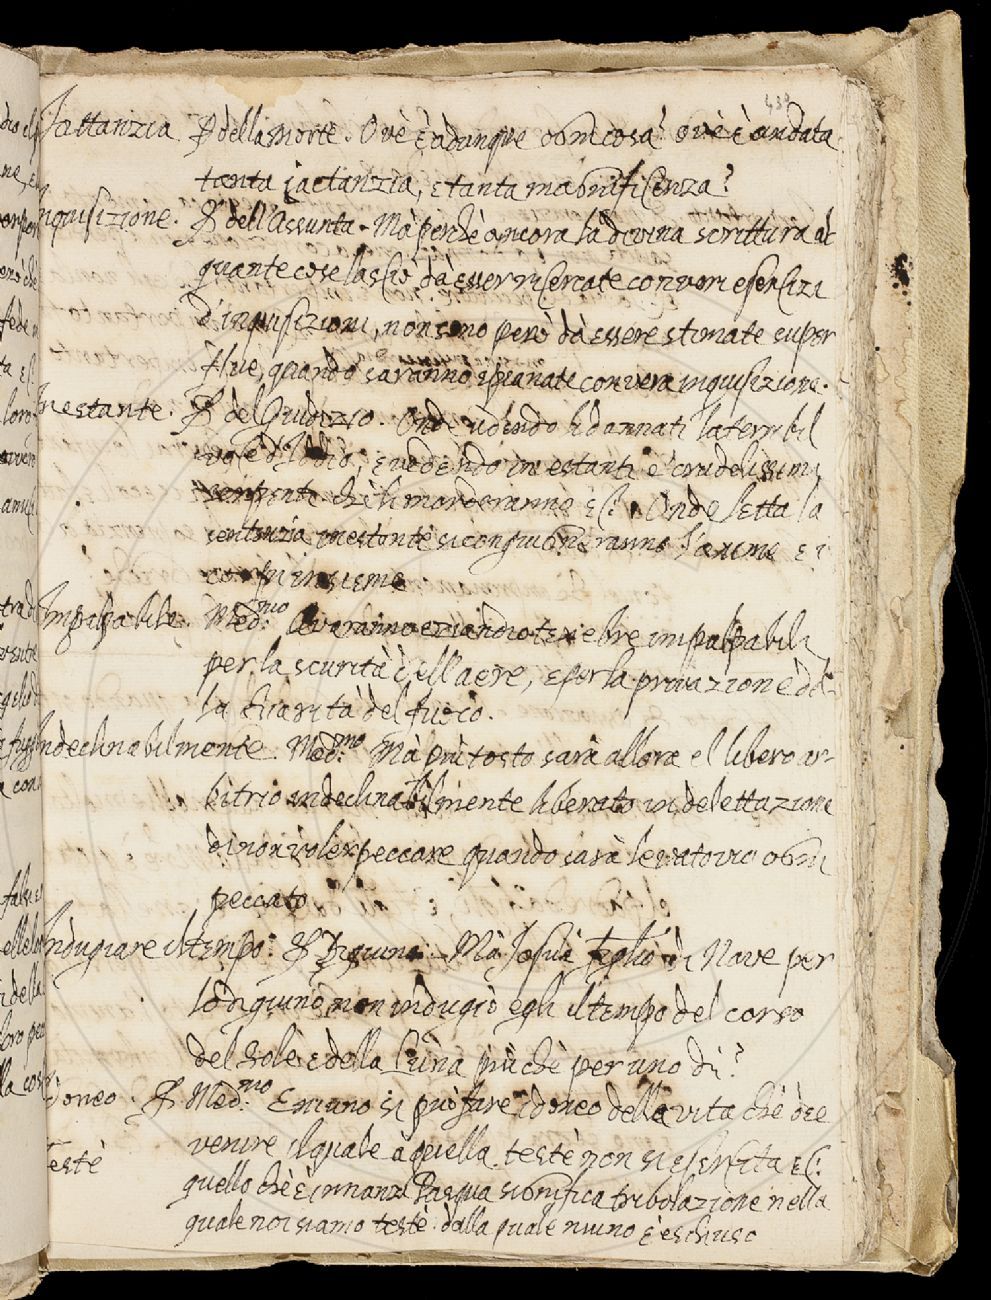 439
Jattanzia. P della morte. Ovè è adunque ogni cosa? ovè è andata
tanta jactanzia, e tanta magnificenza?
Inquisizione. P dell'Assunta. Mà perchè ancora la divina scrittura al
quante cose lasciò dà esser ricercate con varij esercizi
d'inquisizioni, non sono però dà essere stimate super
flue, quando saranno spianate con vera inquisizione.
Inestante. P del Giudizio. Onde udendo li dannati la terribil
voce d'Iddio, e vedendo inestanti e crudelissimi
serpenti chè li morderanno &c. Onde letta la
sentenzia inestante si congiugneranno l'anime e i
corpi insieme
Impalpabile. Med.mo averanno eziandio tenebre impalpabili
per la scurità dell'aere, e per la privazione dè
la chiarità del fuoco.
Indeclinabilmente. Med.mo Mà più tosto sarà allora el libero ar-
bitrio indeclinabilmente liberato in delettazione
di non voler peccare quando sarà levato via ogni
peccato
Indugiare il tempo. P Digiuno. Mà Josuè figlio di Nave per
lo digiuno non indugiò egli il tempo del corso
del Sole e della Luna più chè per uno dì?
Idoneo. P Med.mo E niuno si può fare idoneo della vita chè dee
venire il quale à quella testè non si esercita &c.
Testè quello chè è innanzi Pasqua significa tribolazione nella
quale noi siamo testè dalla quale niuno è eschiuso